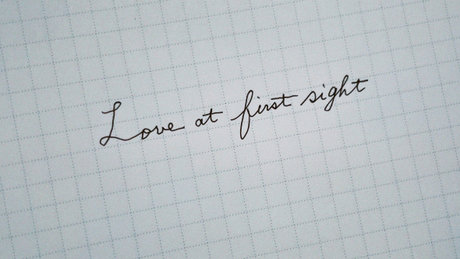 Love at first sight